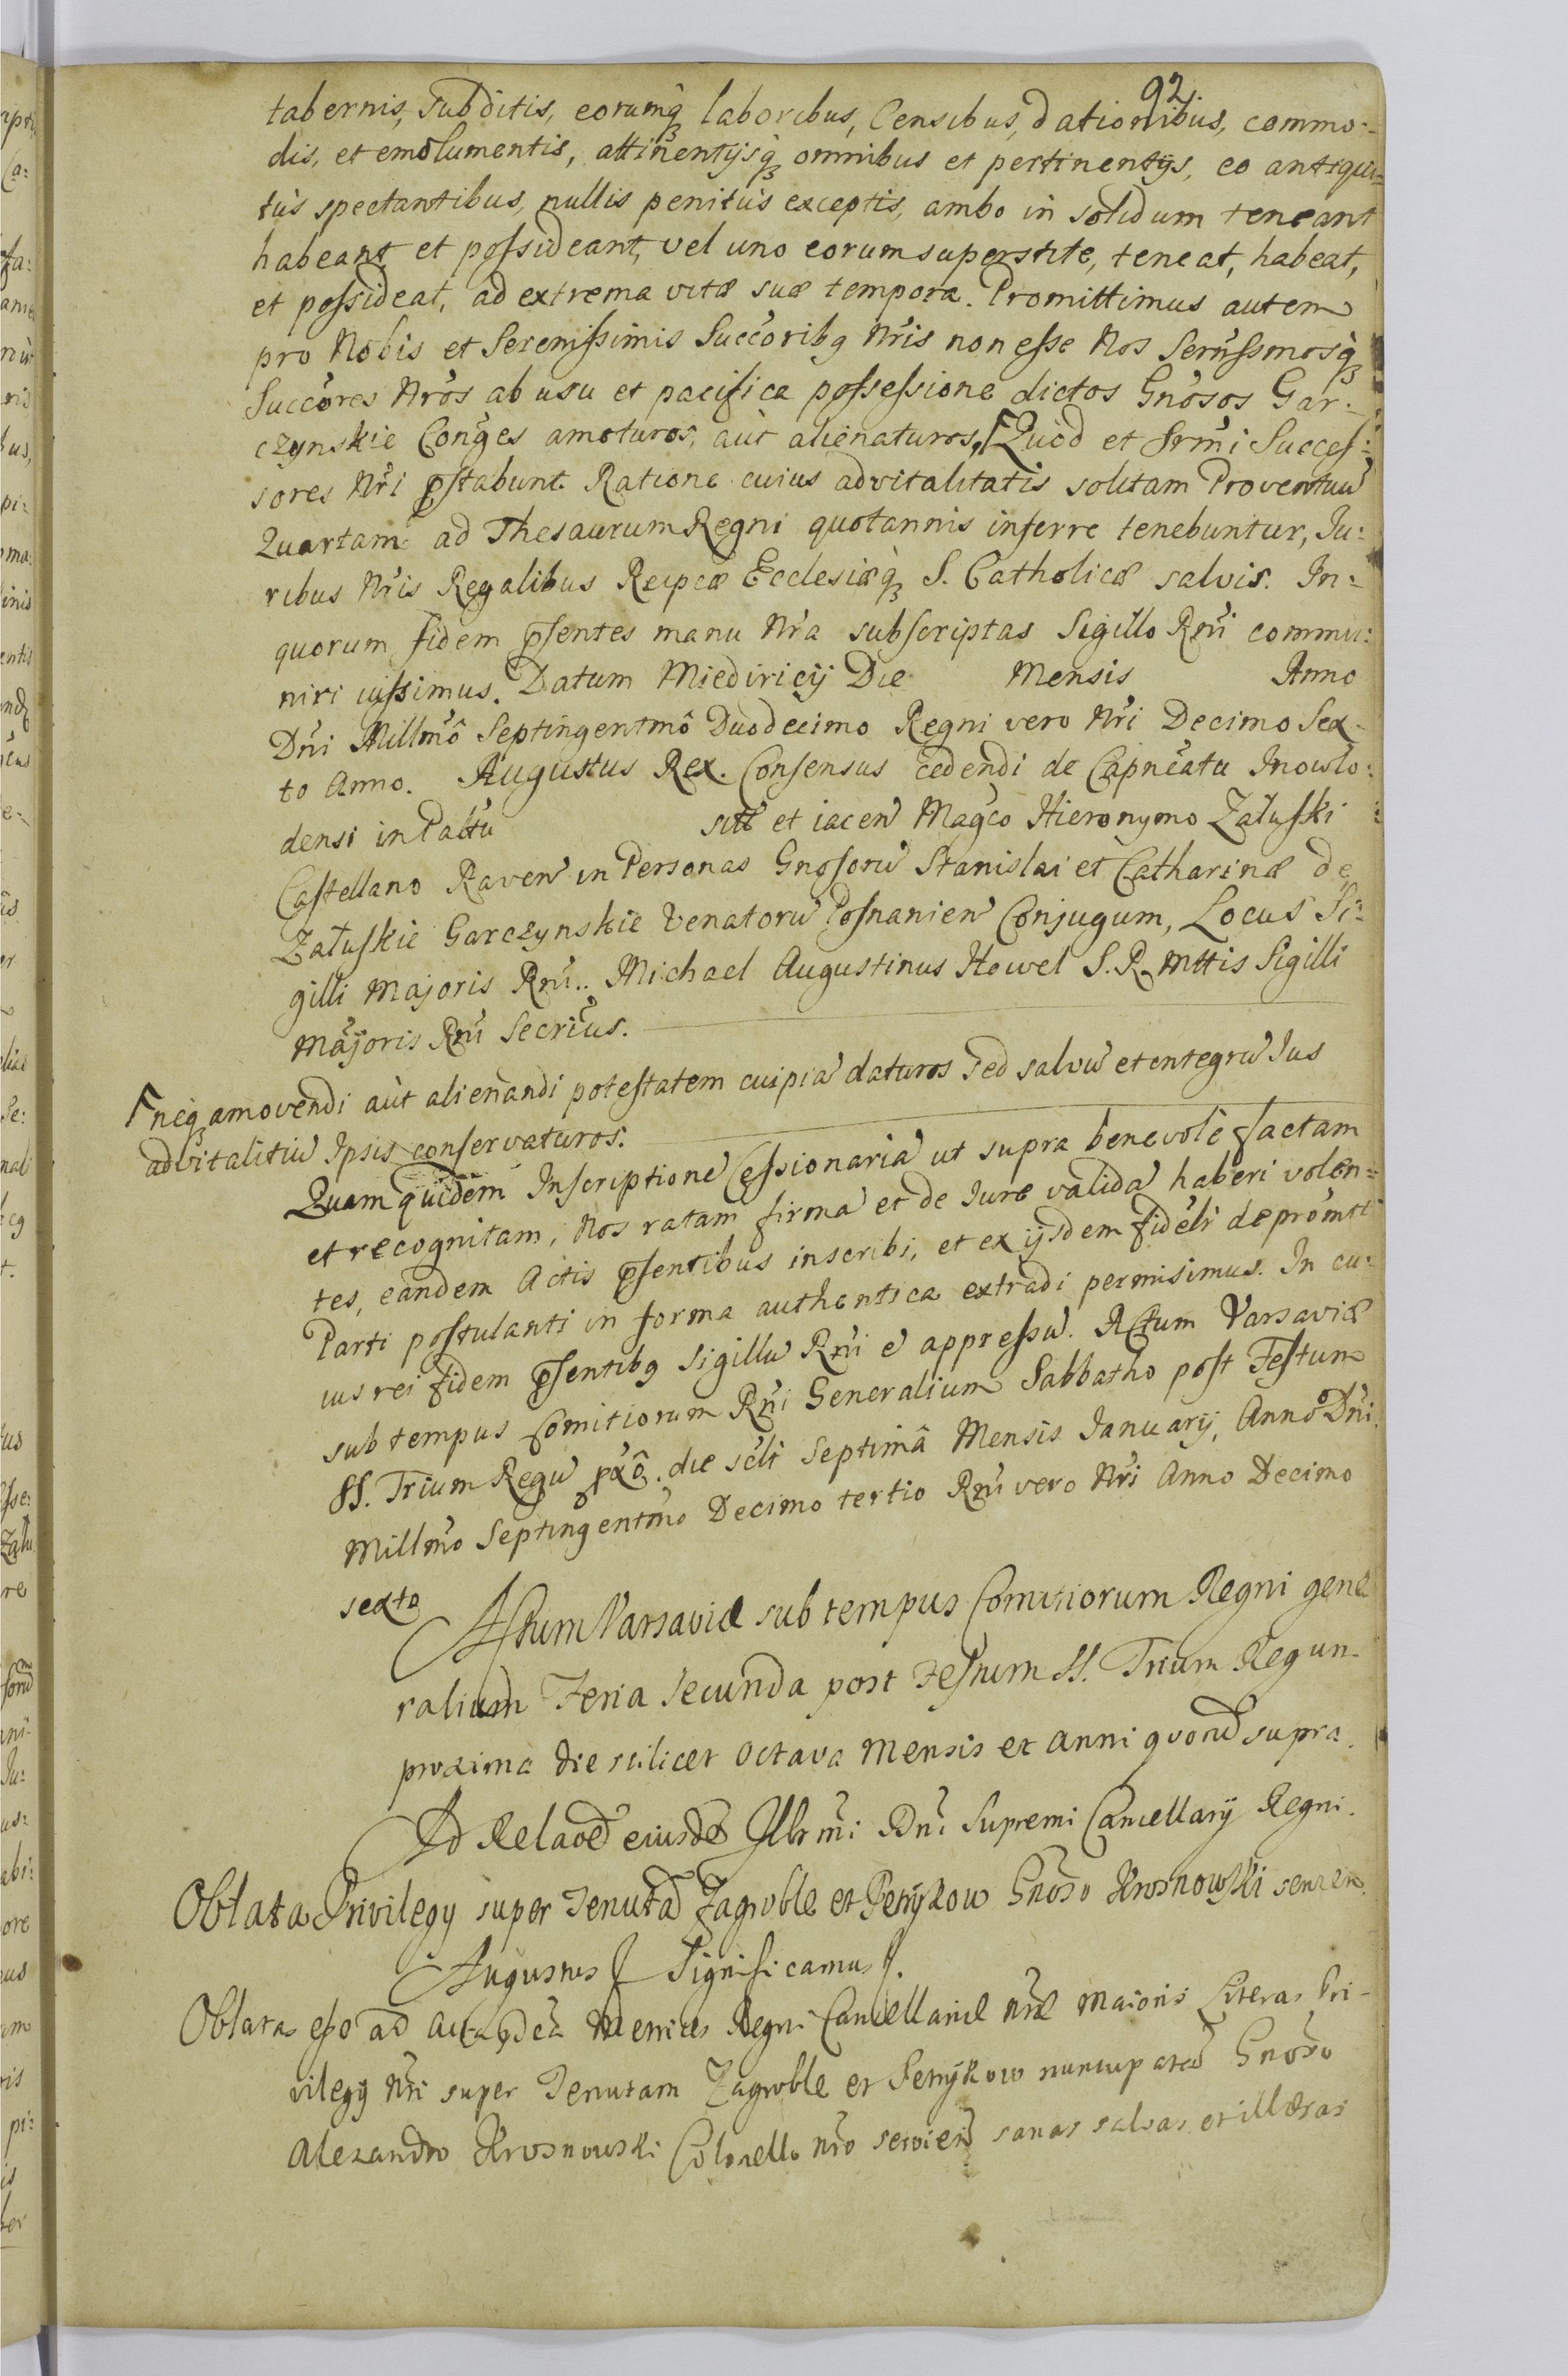 92
tabernis, subditis, eorumq̃ laboribus, Censibus, dationibus, commo:
dis, et emolumentis, attinentijsq̃ omnibus et pertinentijs, eo antiqui=
tùs spectantibus, nullis penitùs exceptis, ambo in solidum teneant
habeant et possideant, vel uno eorum superstite, teneat, habeat,
et possideat, ad extrema vitæ suæ tempora. Promittimus autem
pro Nobis et Serenissimis Succ̃oribq Nr̃is non esse Nos Serñssmosq̃
Succõres Nr̃os ab usu et pacifica possessione dictos Gnõsos Gar:
czynskie Coñges amoturos, aùt alienaturos, ⌈Quòd et Srm̃i Succes:
sores Nr̃i p̃stabunt. Ratione cuius advitalitatis solitam Proventuũ
Quartam ad Thesaurum Regni quotannis inferre tenebuntur, Iu:
ribus Nr̃is Regalibus Reipcæ Ecclesiæq̃ S. Catholicæ salvis. In:
quorum fidem p̃sentes manu Nr̃a subscriptas Sigillo Rñi commu:
niri iussimus. Datum Miediricij Die Mensis Anno
Dñi Millm̃ô Septingentmô Duodecimo Regni vero Nr̃i Decimo Sex
to Anno. Augustus Rex. Consensus cedendi de Capnẽatu Inowlo:
densi in Paltũ sitt et iaceñ Magco Hieronymo Załuski
Castellano Raveñ in Personas Gnosorũ Stanislai et Catharinæ de
Załuskie Garczynskie Venatorũ Posnanieñ Conjugum, Locus Si:
gilli Majoris Rñi.. Michael Augustinus Howel S. R. Mttis Sigilli
Majoris Rñi Secriũs.
⌈neq̃ amovendi aùt alienandi potestatem cuipiã daturos sed salvũ et integrũ Ius
advitalitiũ Ipsis conservaturos.
Quam quidem Inscriptionẽ Cessionariã ut supra benevolè factam
et recognitam, Nos ratam firmã et de Iure validã haberi volen=
tes, eandem Actis p̃sentibus inscribi, et ex ijsdem fideli depromtt
Parti postulanti in forma authentica extradi permisimus. In cu:
ius rei fidem p̃sentibq Sigillũ Rñi ẽ appressũ. Actum Varsaviæ
sub tempus Comitiorum Rñi Generalium Sabbatho post Festum
SS. Trium Regũ pxô. die sclt Septimâ Mensis Ianuarij, Anno Dñi
Millm̃o Septingentm̃o Decimo tertio Rñi vero Nr̃i Anno Decimo
sexto
Actum Varsaviæ sub tempus Comitiorum Regni gene
ralium Feria Secunda post Festum SS. Trium Regum
proxima die scilicet Octava Mensis et Anni quorũ supra.
Ad Relaõẽ eiusdẽ Illrm̃i Dñi Supremi Cancellarij Regni.
Oblata Privilegij super Tenutã Zagroble et Petrÿkow Gnõso Krosnowski
Augustus Significamus
Oblatas esse ad Regni Cancellariæ nr̃æ Maioris Literas Pri-
vilegij Nr̃i super Tenutam Zagroble et Petrÿkow nuncupatã Gnõso
Alexandro Krosnowski Colonello nr̃o servieñ sanas salvas et illæsas